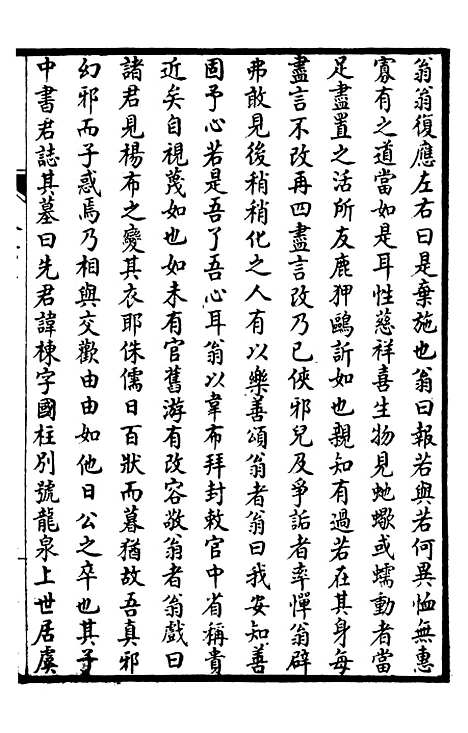 翁翁復應左右曰是棄施也翁曰報若與若何異恤無惠
寡有之道當如是耳性慈祥喜生物見虵蠍或蠕動者當
足盡置之活所友鹿狎鷗訢如也親知有過若在其身每
盡言不改再四盡言改乃已俠邪兒及爭詬者率憚翁辟
弗敢見後稍稍化之人有以樂善頌翁者翁曰我安知善
固予心若是吾了吾心耳翁以韋布拜封敕官中省稱貴
近矣自視蔑如也如未有官舊游有改容敬翁者翁戲曰
諸君見楊布之變其衣耶侏儒日百狀而暮猶故吾真邪
幻邪而子惑焉乃相與交歡由由如他日公之卒也其子
中書君誌其墓曰先君諱棟字國柱別號龍泉上世居虞